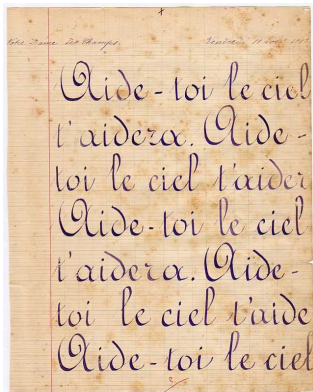 Notre Dame des Champs. Vendredi 11
Aide-toi le ciel
t'aidera. Aide-
toi le ciel t'aider
Aide-toi le ciel
t'aidera. Aide-
toi le ciel t'aide
Aide-toi le ciel